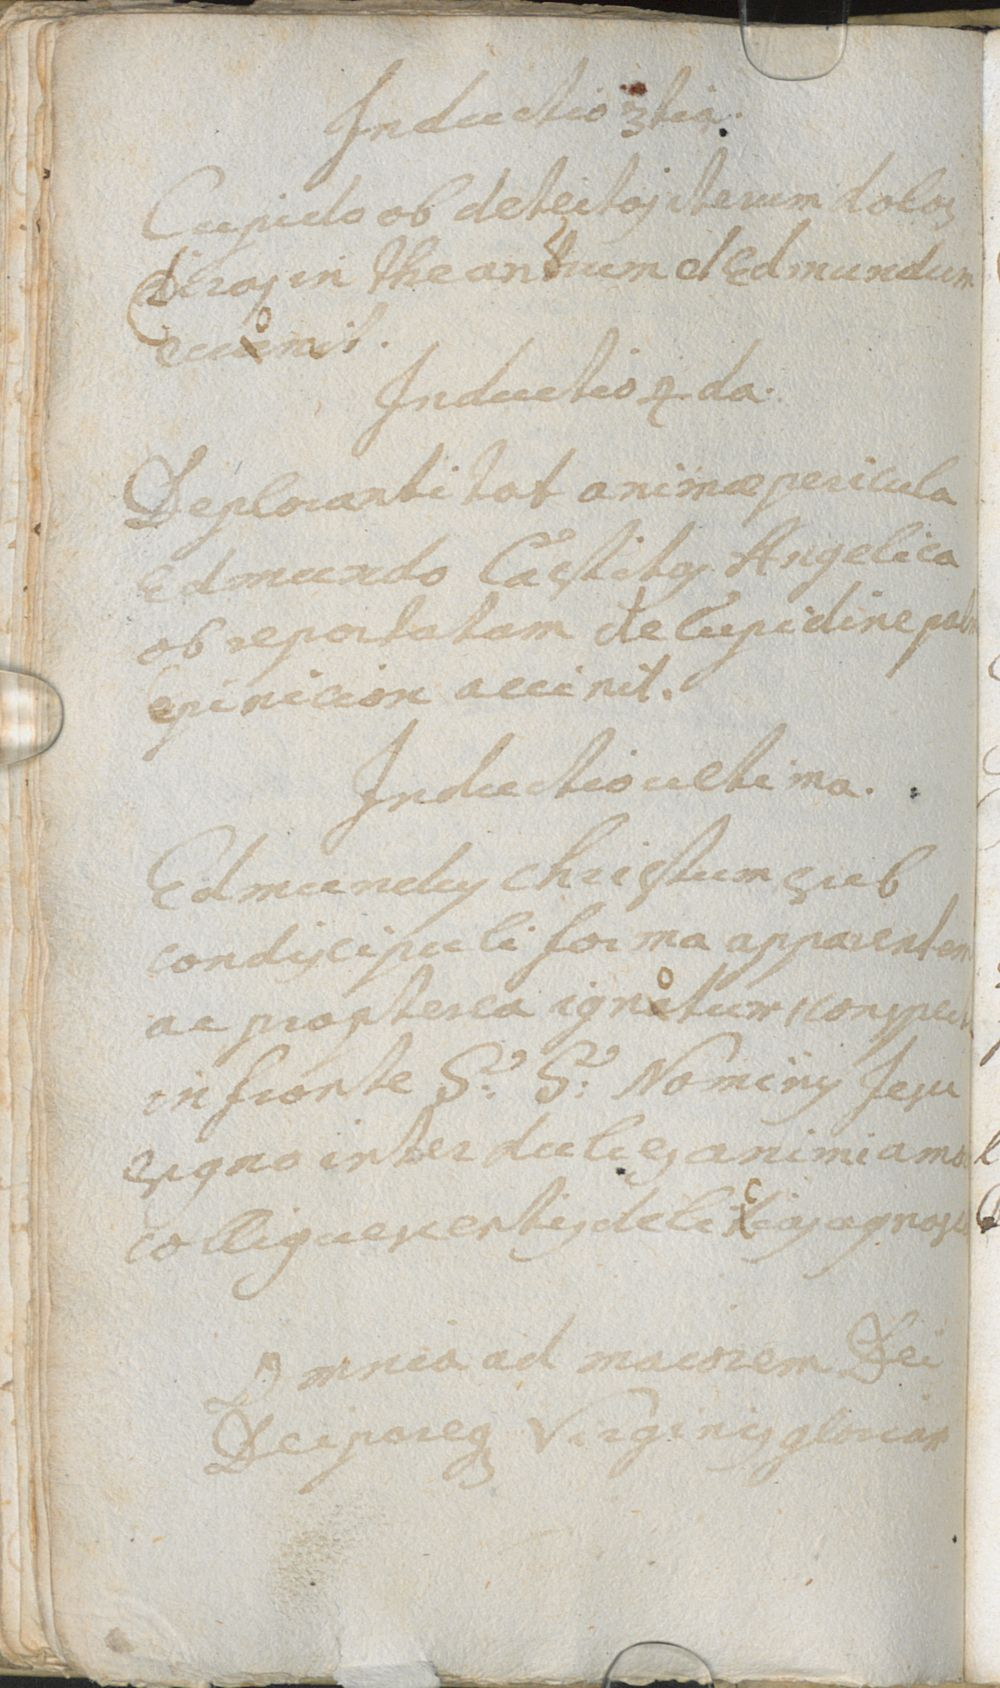 Inductio 3tia.
Cupido ob detectos iterum dolos
diras in Theantrum et Edmundum
evomit.
Inductio 4da.
Deploranti tot animæ pericula
Edmundo Castitas Angelica
ob reportatam de Cupidine
epinicion accinit.
Inductio ultima.
Edmundus Christum sub
condiscipuli forma apparentem
ac propterea ignotum
in fronte S.S: Nominis Jesu
signo inter dulces animi
colliquescentis delicias
Omnia ad maiorem Dei
Deiparæq Virginis gloriam